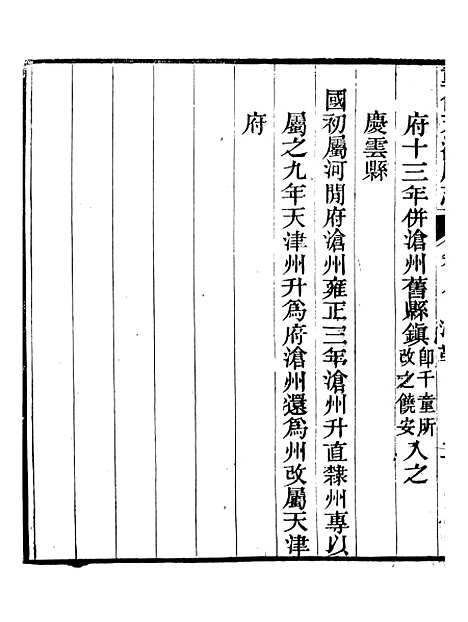 府十三年併滄州舊縣鎭卽千童所改之饒安入之
慶雲縣
國初屬河閒府滄州雍正三年滄州升直隸州專以
屬之九年天津州升爲府滄州還爲州改屬天津
府